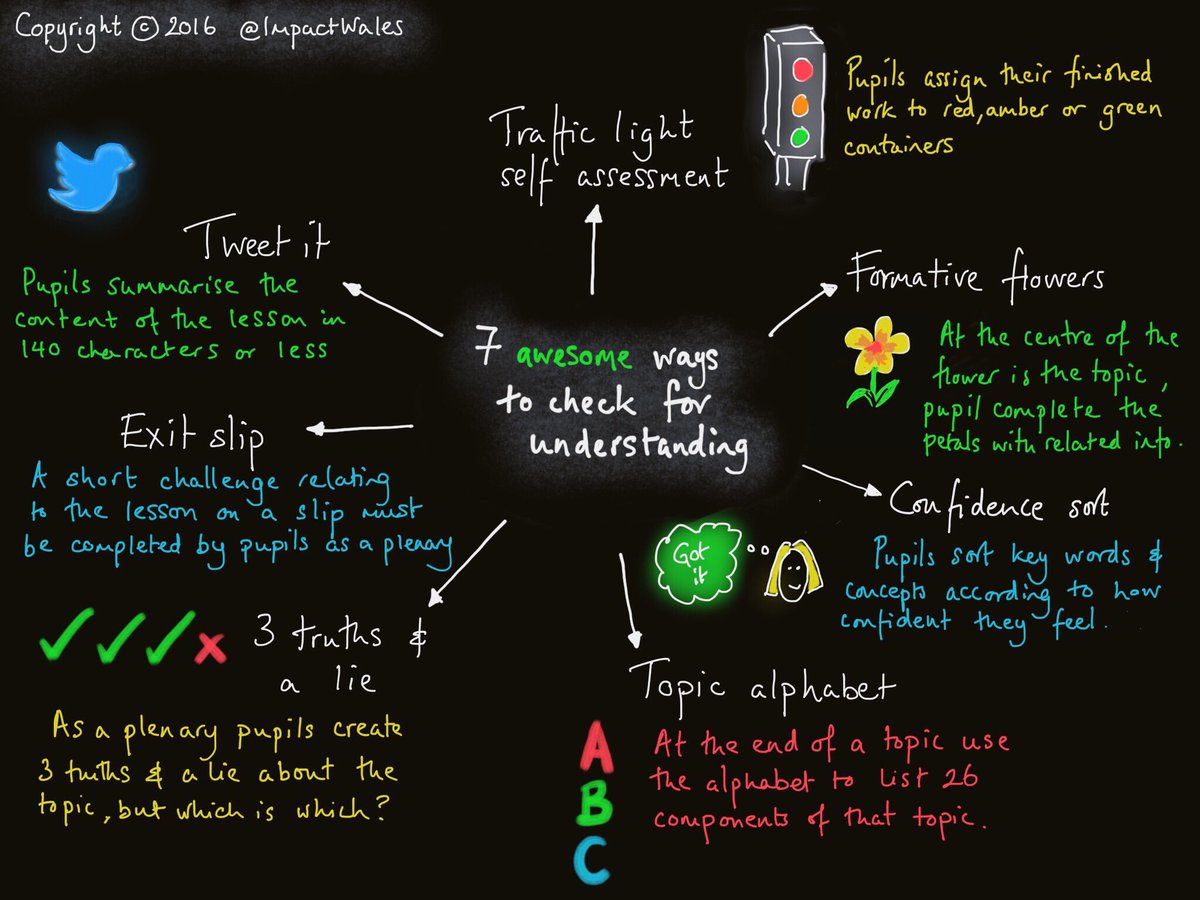 Copyright © 2016 @ImpactWales
7 awesome ways
to check for
understanding
Traffic light
self assessment
Pupils assign their finished
work to red, amber or green
containers
Formative flowers
At the centre of the
flower is the topic,
pupil complete the
petals with related info.
Confidence sort
Got
it
Pupils sort key words &
concepts according to how
confident they feel.
Topic alphabet
A
B
C
At the end of a topic use
the alphabet to list 26
components of that topic.
3 truths &
a lie
As a plenary pupils create
3 truths & a lie about the
topic, but which is which?
Exit slip
A short challenge relating
to the lesson on a slip must
be completed by pupils as a plenary
Tweet it
Pupils summarise the
content of the lesson in
140 characters or less